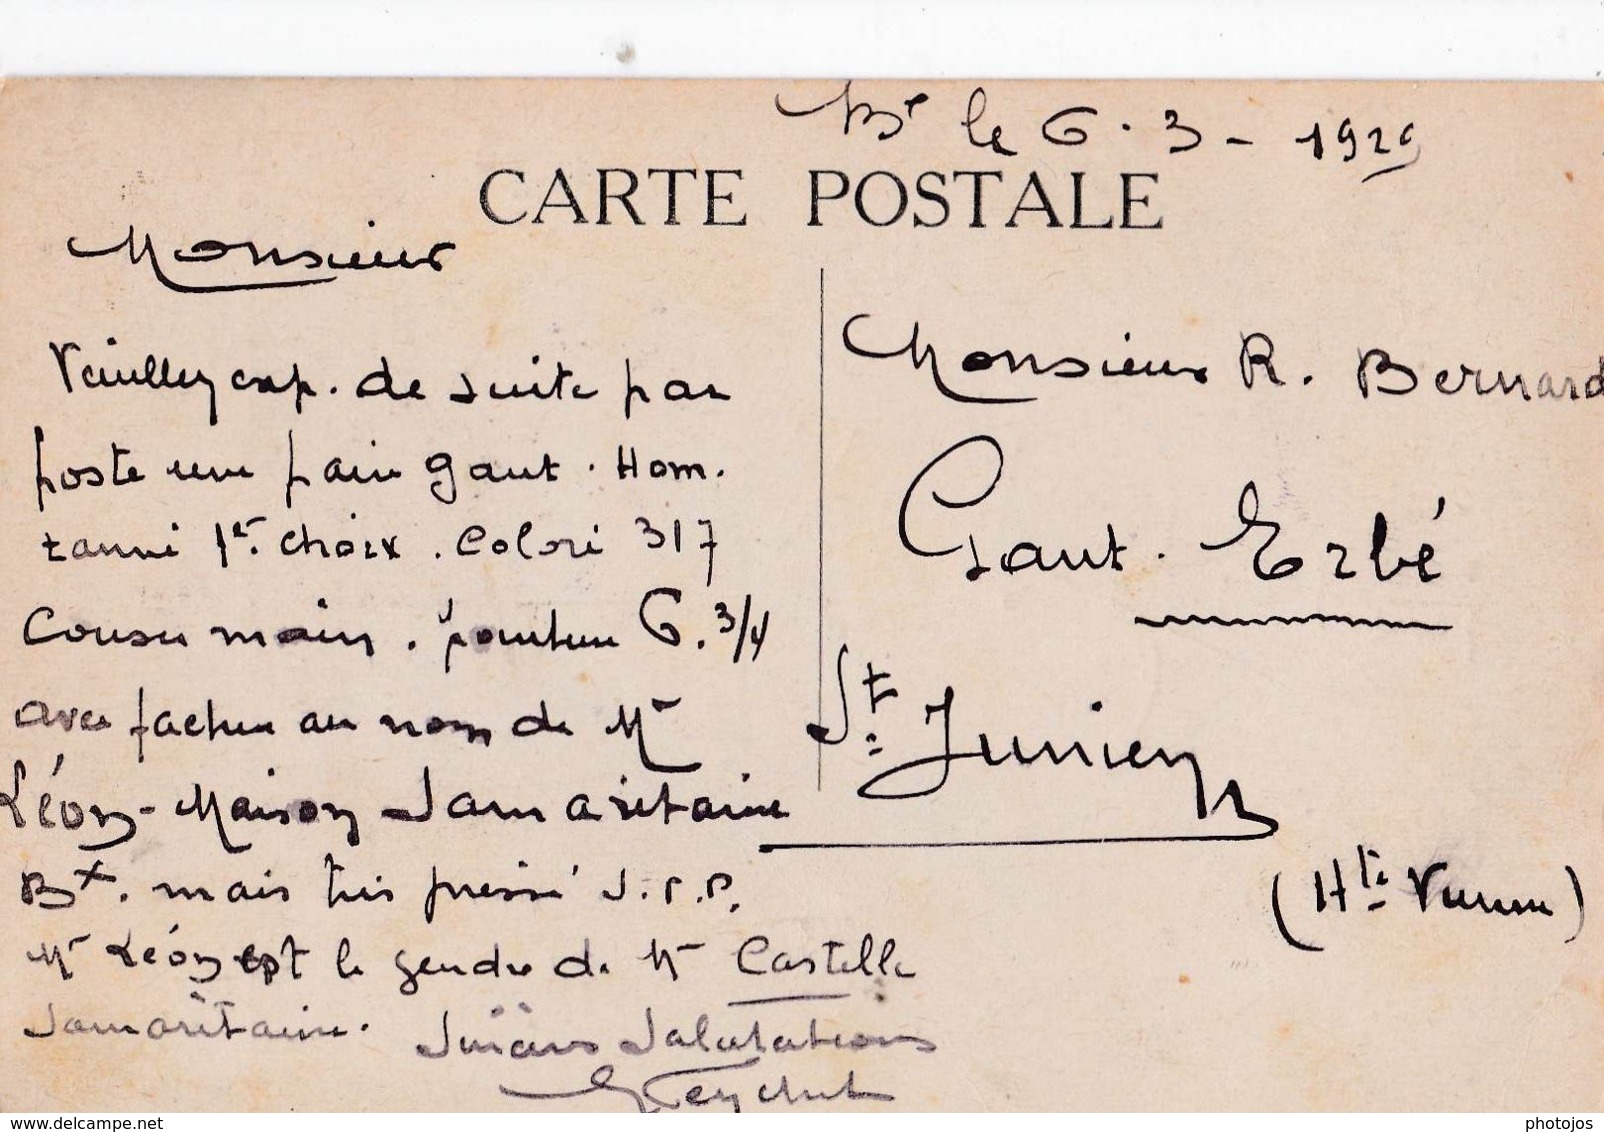 Bx le 6 - 3 - 1929
CARTE POSTALE
Monsieur
Veuillez exp. de suite par
poste une paire gant. Hom.
tanné 1er choix. Colori 317
cousu main. pointure 6.3/4
avec facture au nom de Mr
Léon - Maison Samaritaine
Bx. mais très pressé S.V.P.
Mr Léon est le gendre de Mr Castelle
Samaritaine. Sincères Salutations
Monsieur R. Bernard
Gant. Erbé
St. Junien
(Hte Vienne)
www.delcampe.net
photojos